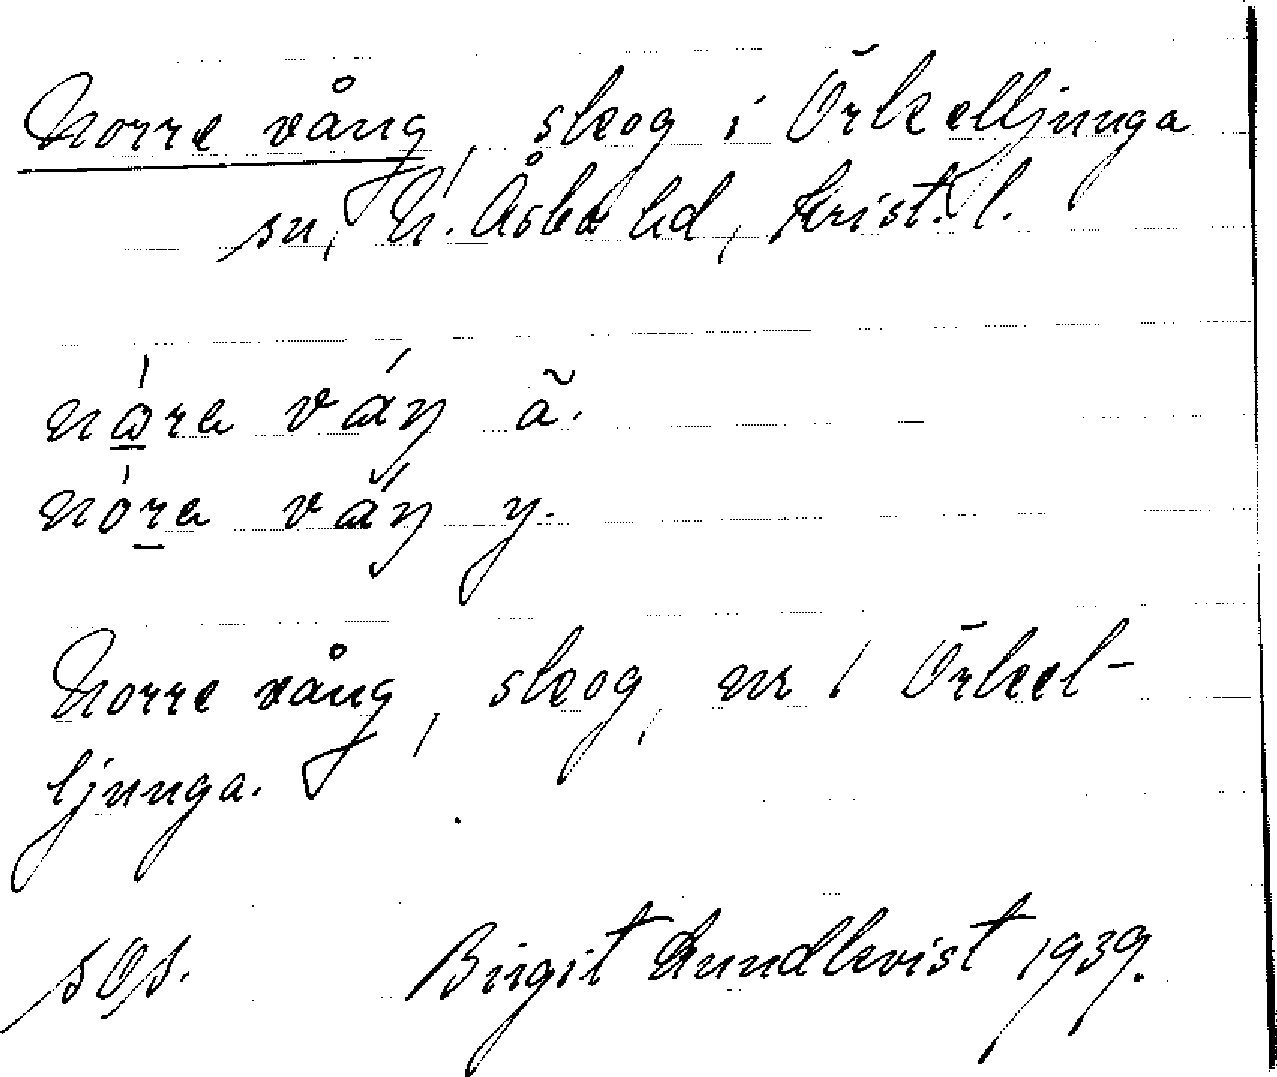 Norre vång, skog i Örkelljunga
sn, N. Åsbo hd, Krist. l.
nåra váŋ ã.
nóra vắŋ y.
Norre vång, skog, nr 1 Örkel-
ljunga.
sOs. Birgit Lundkvist 1939.